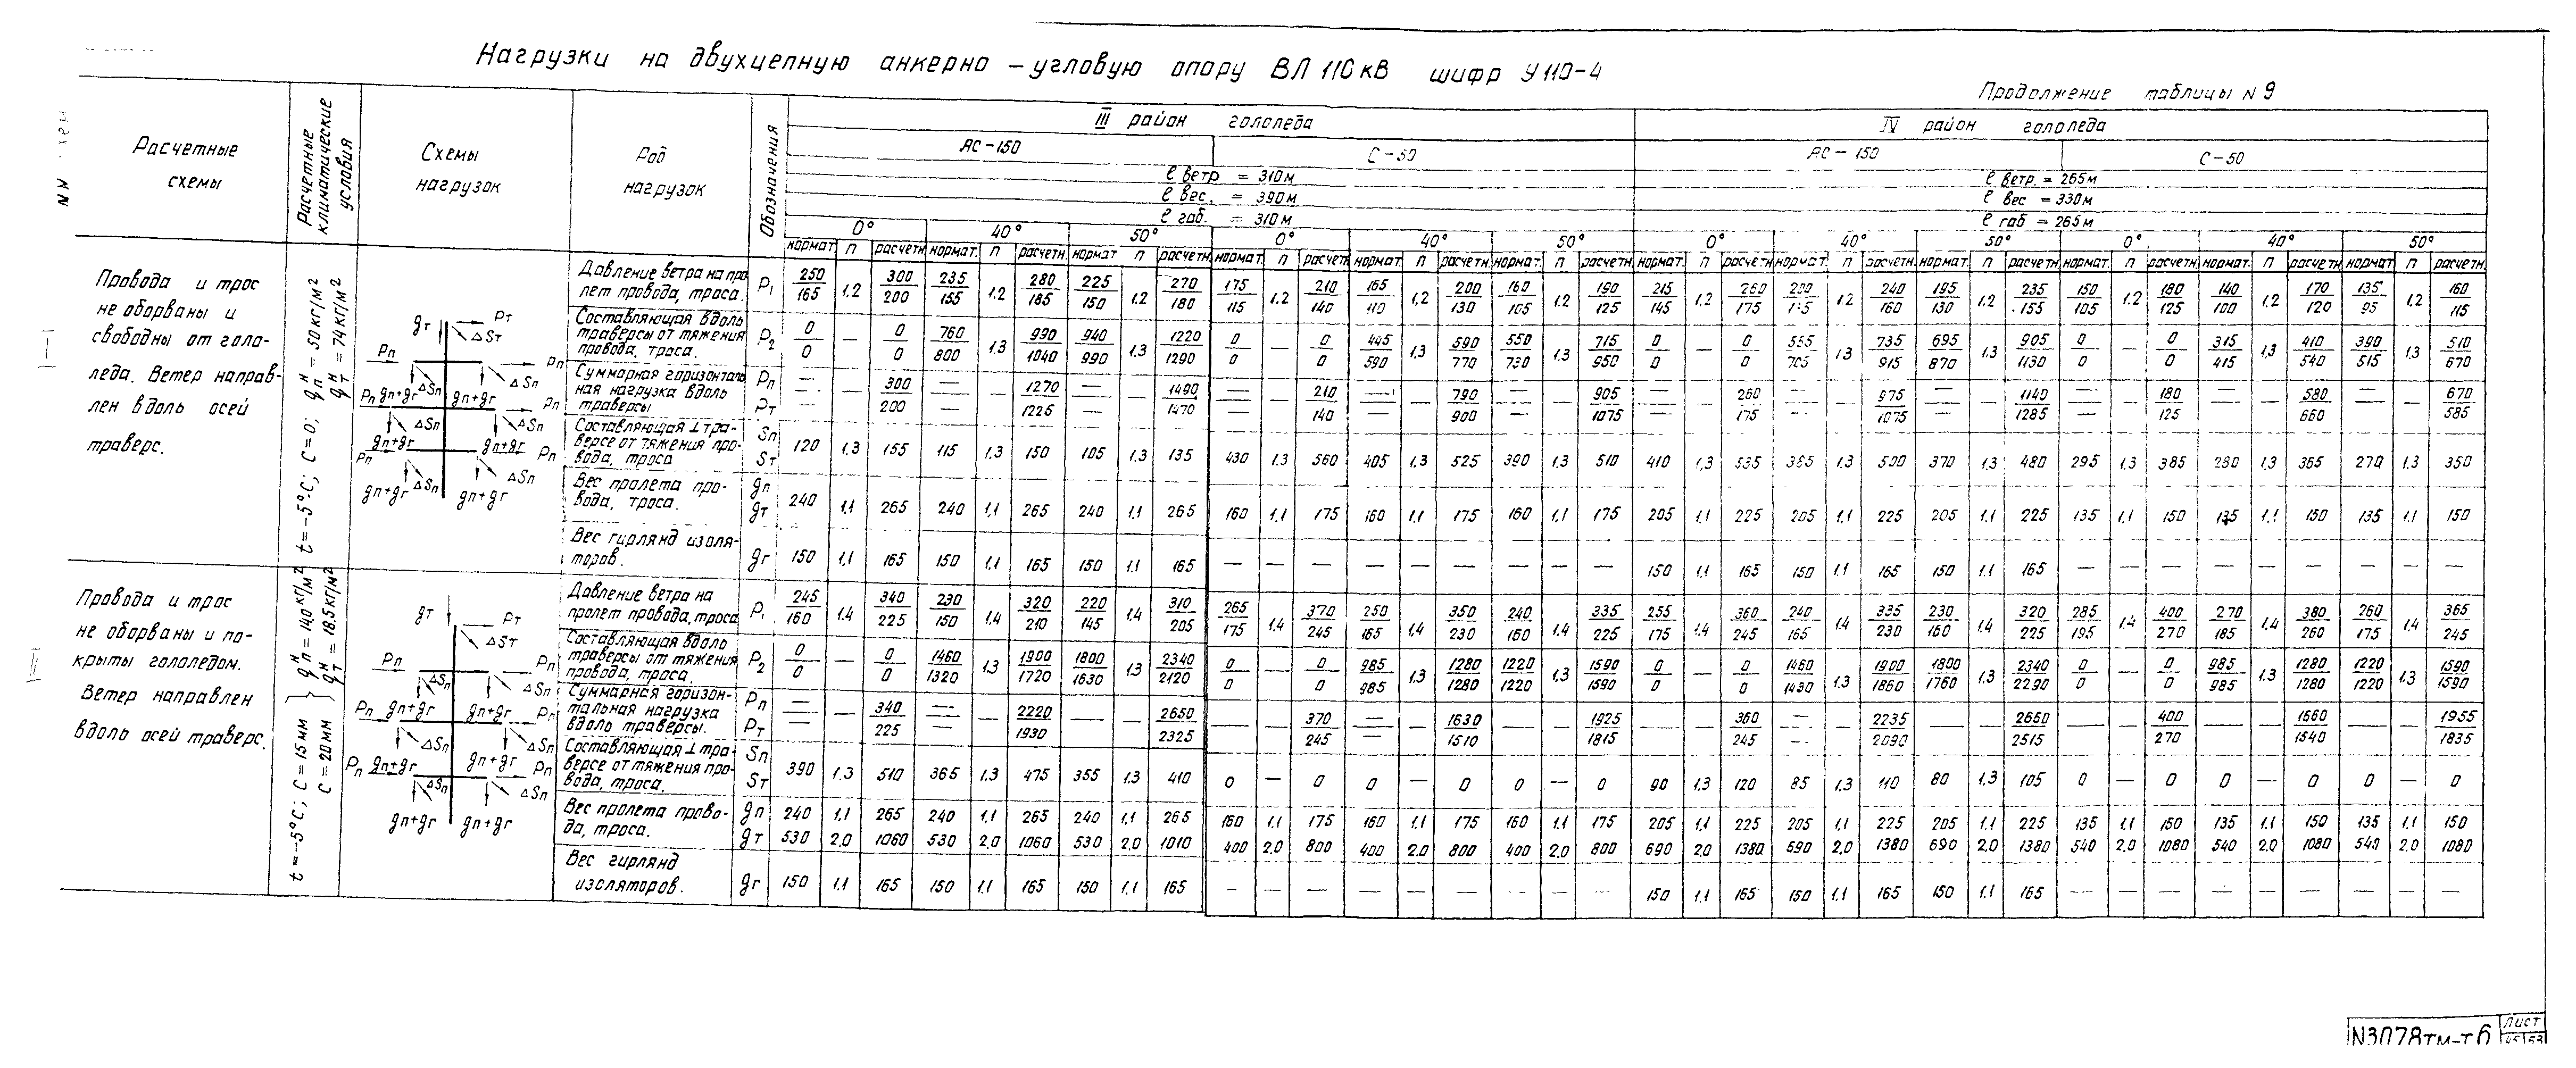 Нагрузки на двухцепную анкерно – угловую опору ВЛ 110 кВ шифр У 110-4
Продолжение таблицы N 9
NN схем
Расчетные схемы
Расчетные климатические условия
Схемы нагрузок
Род нагрузок
Обозначения
III район гололеда
IV район гололеда
АС – 150
С – 50
АС – 150
С – 50
ℓ ветр = 310 м
ℓ ветр. = 265 м
ℓ вес. = 390 м
ℓ вес = 330 м
ℓ габ. = 310 м
ℓ габ = 265 м
0° 40° 50° 0° 40° 50° 0° 40° 50° 0° 40° 50°
нормат. п расчетн. нормат. п расчетн. нормат п расчетн. нормат. п расчетн. нормат. п расчетн. нормат. п расчетн. нормат. п расчетн. нормат. п расчетн. нормат. п расчетн. нормат. п расчетн. нормат. п расчетн. нормат п расчетн.
I
Провода и трос
не оборваны и
свободны от голо-
леда. Ветер направ-
лен вдоль осей
траверс.
t = -5°C; C = 0; qпн = 50 кг/м2
qтн = 74 кг/м2
gт Pт ΔSт
Pп Pп ΔSп
Pп gп+gг ΔSп gп+gг Pп
ΔSп ΔSп
gп+gг gп+gг Pп
Pп ΔSп ΔSп
gп+gг gп+gг
Давление ветра на про
лет провода, троса. P1
250/165 1.2 300/200 235/155 1.2 280/185 225/150 1.2 270/180 175/115 1.2 210/140 165/110 1,2 200/130 160/105 1.2 190/125 215/145 1.2 260/175 1.2 240/160 195/130 1.2 235/155 150/105 1.2 180/125 140/100 1.2 170/120 135/95 1.2 160/115
Составляющая вдоль
траверсы от тяжения
провода, троса. P2
0/0 — 0/0 760/800 1.3 990/1040 940/990 1.3 1220/1290 0/0 — 0/0 445/590 1,3 590/770 550/730 1.3 715/950 0/0 — 0/0 1.3 735/915 695/870 1.3 905/1130 0/0 — 0/0 315/415 1.3 410/540 390/515 1.3 510/670
Суммарная горизонталь
ная нагрузка вдоль
траверсы Pп Pт
— 300/200 — 1270/1225 — 1490/1470 — 210/140 — 790/900 — 905/1075 — 260/175 — 975/1075 — 1140/1285 — 180/125 — 580/660 — 670/585
Составляющая ⊥ тра-
версе от тяжения про-
вода, троса Sп Sт
120 1.3 155 115 1.3 150 105 1.3 135 430 1.3 560 405 1.3 525 390 1.3 510 410 1.3 535 385 1.3 500 370 1.3 480 295 1.3 385 280 1.3 365 270 1.3 350
Вес пролета про-
вода, троса. gп gт
240 1.1 265 240 1.1 265 240 1.1 265 160 1.1 175 160 1.1 175 160 1.1 175 205 1.1 225 205 1.1 225 205 1.1 225 135 1.1 150 135 1.1 150 135 1.1 150
Вес гирлянд изоля-
торов. gг
150 1.1 165 150 1.1 165 150 1.1 165 — — — — — — — — — 150 1.1 165 150 1.1 165 150 1.1 165 — — — — — — — — —
II
Провода и трос
не оборваны и по-
крыты гололедом.
Ветер направлен
вдоль осей траверс.
t = -5°C; C = 15 мм C = 20 мм } qпн = 14,0 кг/м2 qтн = 18.5 кг/м2
gт Pт ΔSт
Pп Pп
ΔSп ΔSп
Pп gп+gг gп+gг Pп
ΔSп ΔSп
Pп gп+gг gп+gг Pп
ΔSп ΔSп
gп+gг gп+gг
Давление ветра на
пролет провода, троса P1
245/160 1.4 340/225 230/150 1.4 320/210 220/145 1.4 310/205 265/175 1.4 370/245 250/165 1.4 350/230 240/160 1.4 335/225 255/175 1.4 360/245 240/165 1.4 335/230 230/160 1.4 320/225 285/195 1.4 400/270 270/185 1.4 380/260 260/175 1.4 365/245
Составляющая вдоль
траверсы от тяжения
провода, троса. P2
0/0 — 0/0 1460/1320 1.3 1900/1720 1800/1630 1.3 2340/2120 0/0 — 0/0 985/985 1.3 1280/1280 1220/1220 1.3 1590/1590 0/0 — 0/0 1460/1430 1.3 1900/1860 1800/1760 1.3 2340/2290 0/0 — 0/0 985/985 1.3 1280/1280 1220/1220 1.3 1590/1590
Суммарная горизон-
тальная нагрузка
вдоль траверсы. Pп Pт
— 340/225 — 2220/1930 — 2650/2325 — 370/245 — 1630/1510 — 1925/1815 — 360/245 — 2235/2090 — 2660/2515 — 400/270 — 1660/1540 — 1955/1835
Составляющая ⊥ тра-
версе от тяжения про-
вода, троса. Sп Sт
390 1.3 510 365 1.3 475 355 1.3 410 0 — 0 0 — 0 0 — 0 90 1.3 120 85 1.3 110 80 1.3 105 0 — 0 0 — 0 0 — 0
Вес пролета прово-
да, троса. gп gт
240 1.1 265 240 1.1 265 240 1.1 265 160 1.1 175 160 1.1 175 160 1.1 175 205 1.1 225 205 1.1 225 205 1.1 225 135 1.1 150 135 1.1 150 135 1.1 150
530 2,0 1060 530 2,0 1060 530 2,0 1010 400 2,0 800 400 2,0 800 400 2,0 800 690 2,0 1380 690 2,0 1380 690 2,0 1380 540 2,0 1080 540 2,0 1080 540 2,0 1080
Вес гирлянд
изоляторов. gг
150 1.1 165 150 1.1 165 150 1.1 165 — — — — — — — — — 150 1.1 165 150 1.1 165 150 1.1 165 — — — — — — — — —
N3078тм-т6 Лист